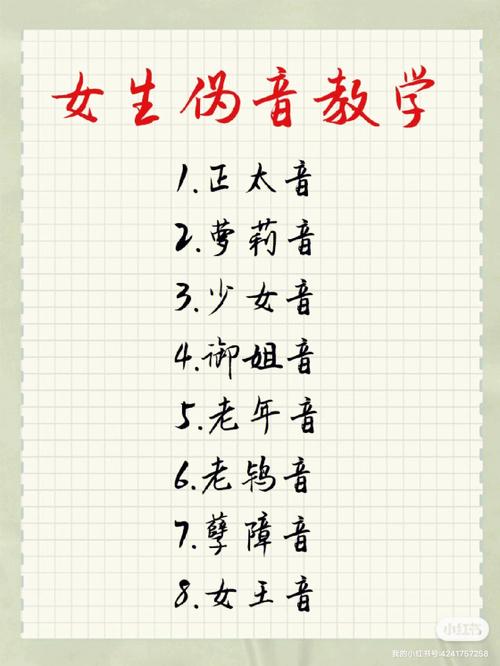 女生伪音教学
1.正太音
2.萝莉音
3.少女音
4.御姐音
5.老年音
6.老鸨音
7.孽障音
8.女王音
小红书
我的小红书号:4241757258